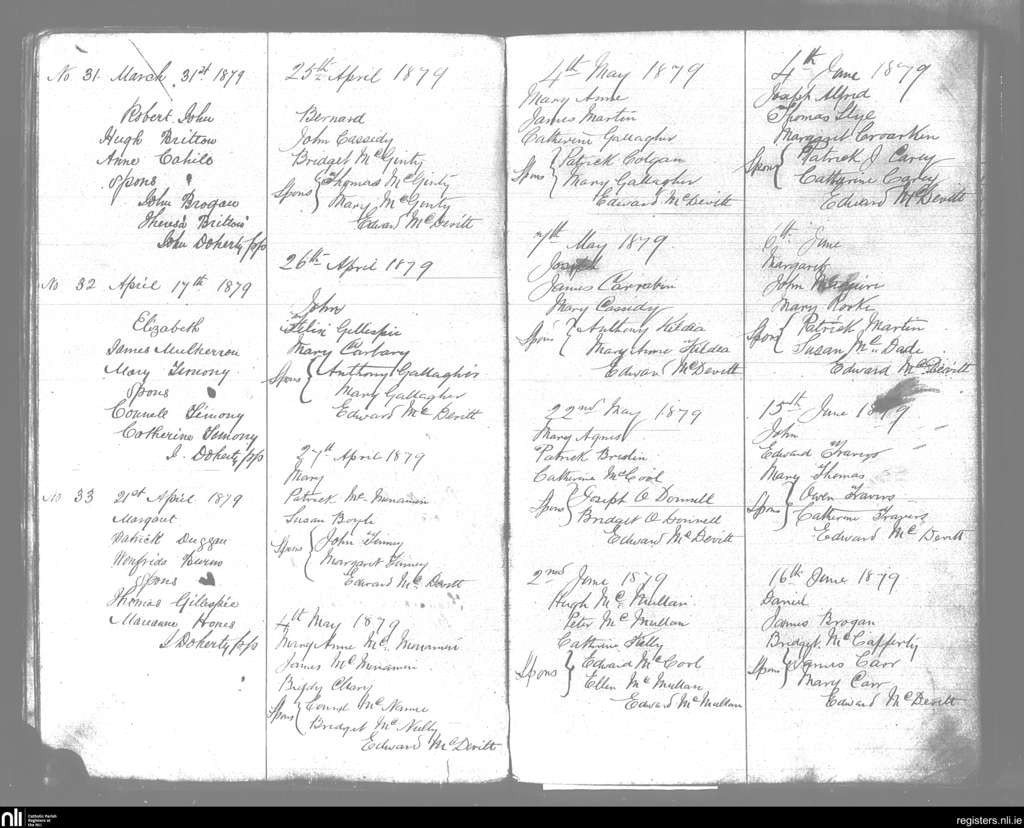 No 31 March 31st 1879
Robert John
Hugh Britton
Anne Cahill
Spons
John Brogan
Theresa Britton
John Doherty p/p
No 32 April 17th 1879
Elizabeth
James Mulkerron
Mary Timony
Spons
Connell Timony
Catherine Timony
J. Doherty p/p
No 33 21st April 1879
Margaret
Patrick Duggan
Winifrida Burns
Spons
Thomas Gillespie
Marianne
J Doherty p/p
25th April 1879
Bernard
John Cassidy
Bridget McGinty
Spons { Thomas McGinty
Mary McGinty
Edward McDevitt
26th April 1879
John
Felix Gillespie
Mary Carbary
Spons { Anthony Gallagher
Mary Gallagher
Edward McDevitt
27th April 1879
Mary
Patrick McMenamin
Susan Boyle
Spons { John Timney
Margaret Timney
Edward McDevitt
4th May 1879
Mary Anne McMenamin
James McMenamin
Biddy Cleary
Spons { Connel McNamee
Bridget McNulty
Edward McDevitt
4th May 1879
Mary Anne
James Martin
Catherine Gallagher
Spons { Patrick Colgan
Mary Gallagher
Edward McDevitt
7th May 1879
Joseph
James Carrabin
Mary Cassidy
Spons { Anthony Kildea
Mary Anne Kildea
Edward McDevitt
22nd May 1879
Mary Agnes
Patrick Breslin
Catherine McCool
Spons { Joseph O Donnell
Bridget O Donnell
Edward McDevitt
2nd June 1879
Hugh McMullan
Peter McMullan
Catherine Kelly
Spons { Edward McCool
Ellen McMullan
Edward McMullan
4th June 1879
Joseph Alfred
Thomas Slye
Margaret Croarken
Spons { Patrick J Carey
Catherine Carey
Edward McDevitt
6th June
Margaret
John McGuire
Mary Rorke
Spons { Patrick Martin
Susan McDade
Edward McDevitt
15th June 1879
John
Edward Travers
Mary Thomas
Spons { Owen Travers
Catherine Travers
Edward McDevitt
16th June 1879
Daniel
James Brogan
Bridget McCafferty
Spons { James Carr
Mary Carr
Edward McDevitt
nli Catholic Parish
Registers at
the NLI
registers.nli.ie